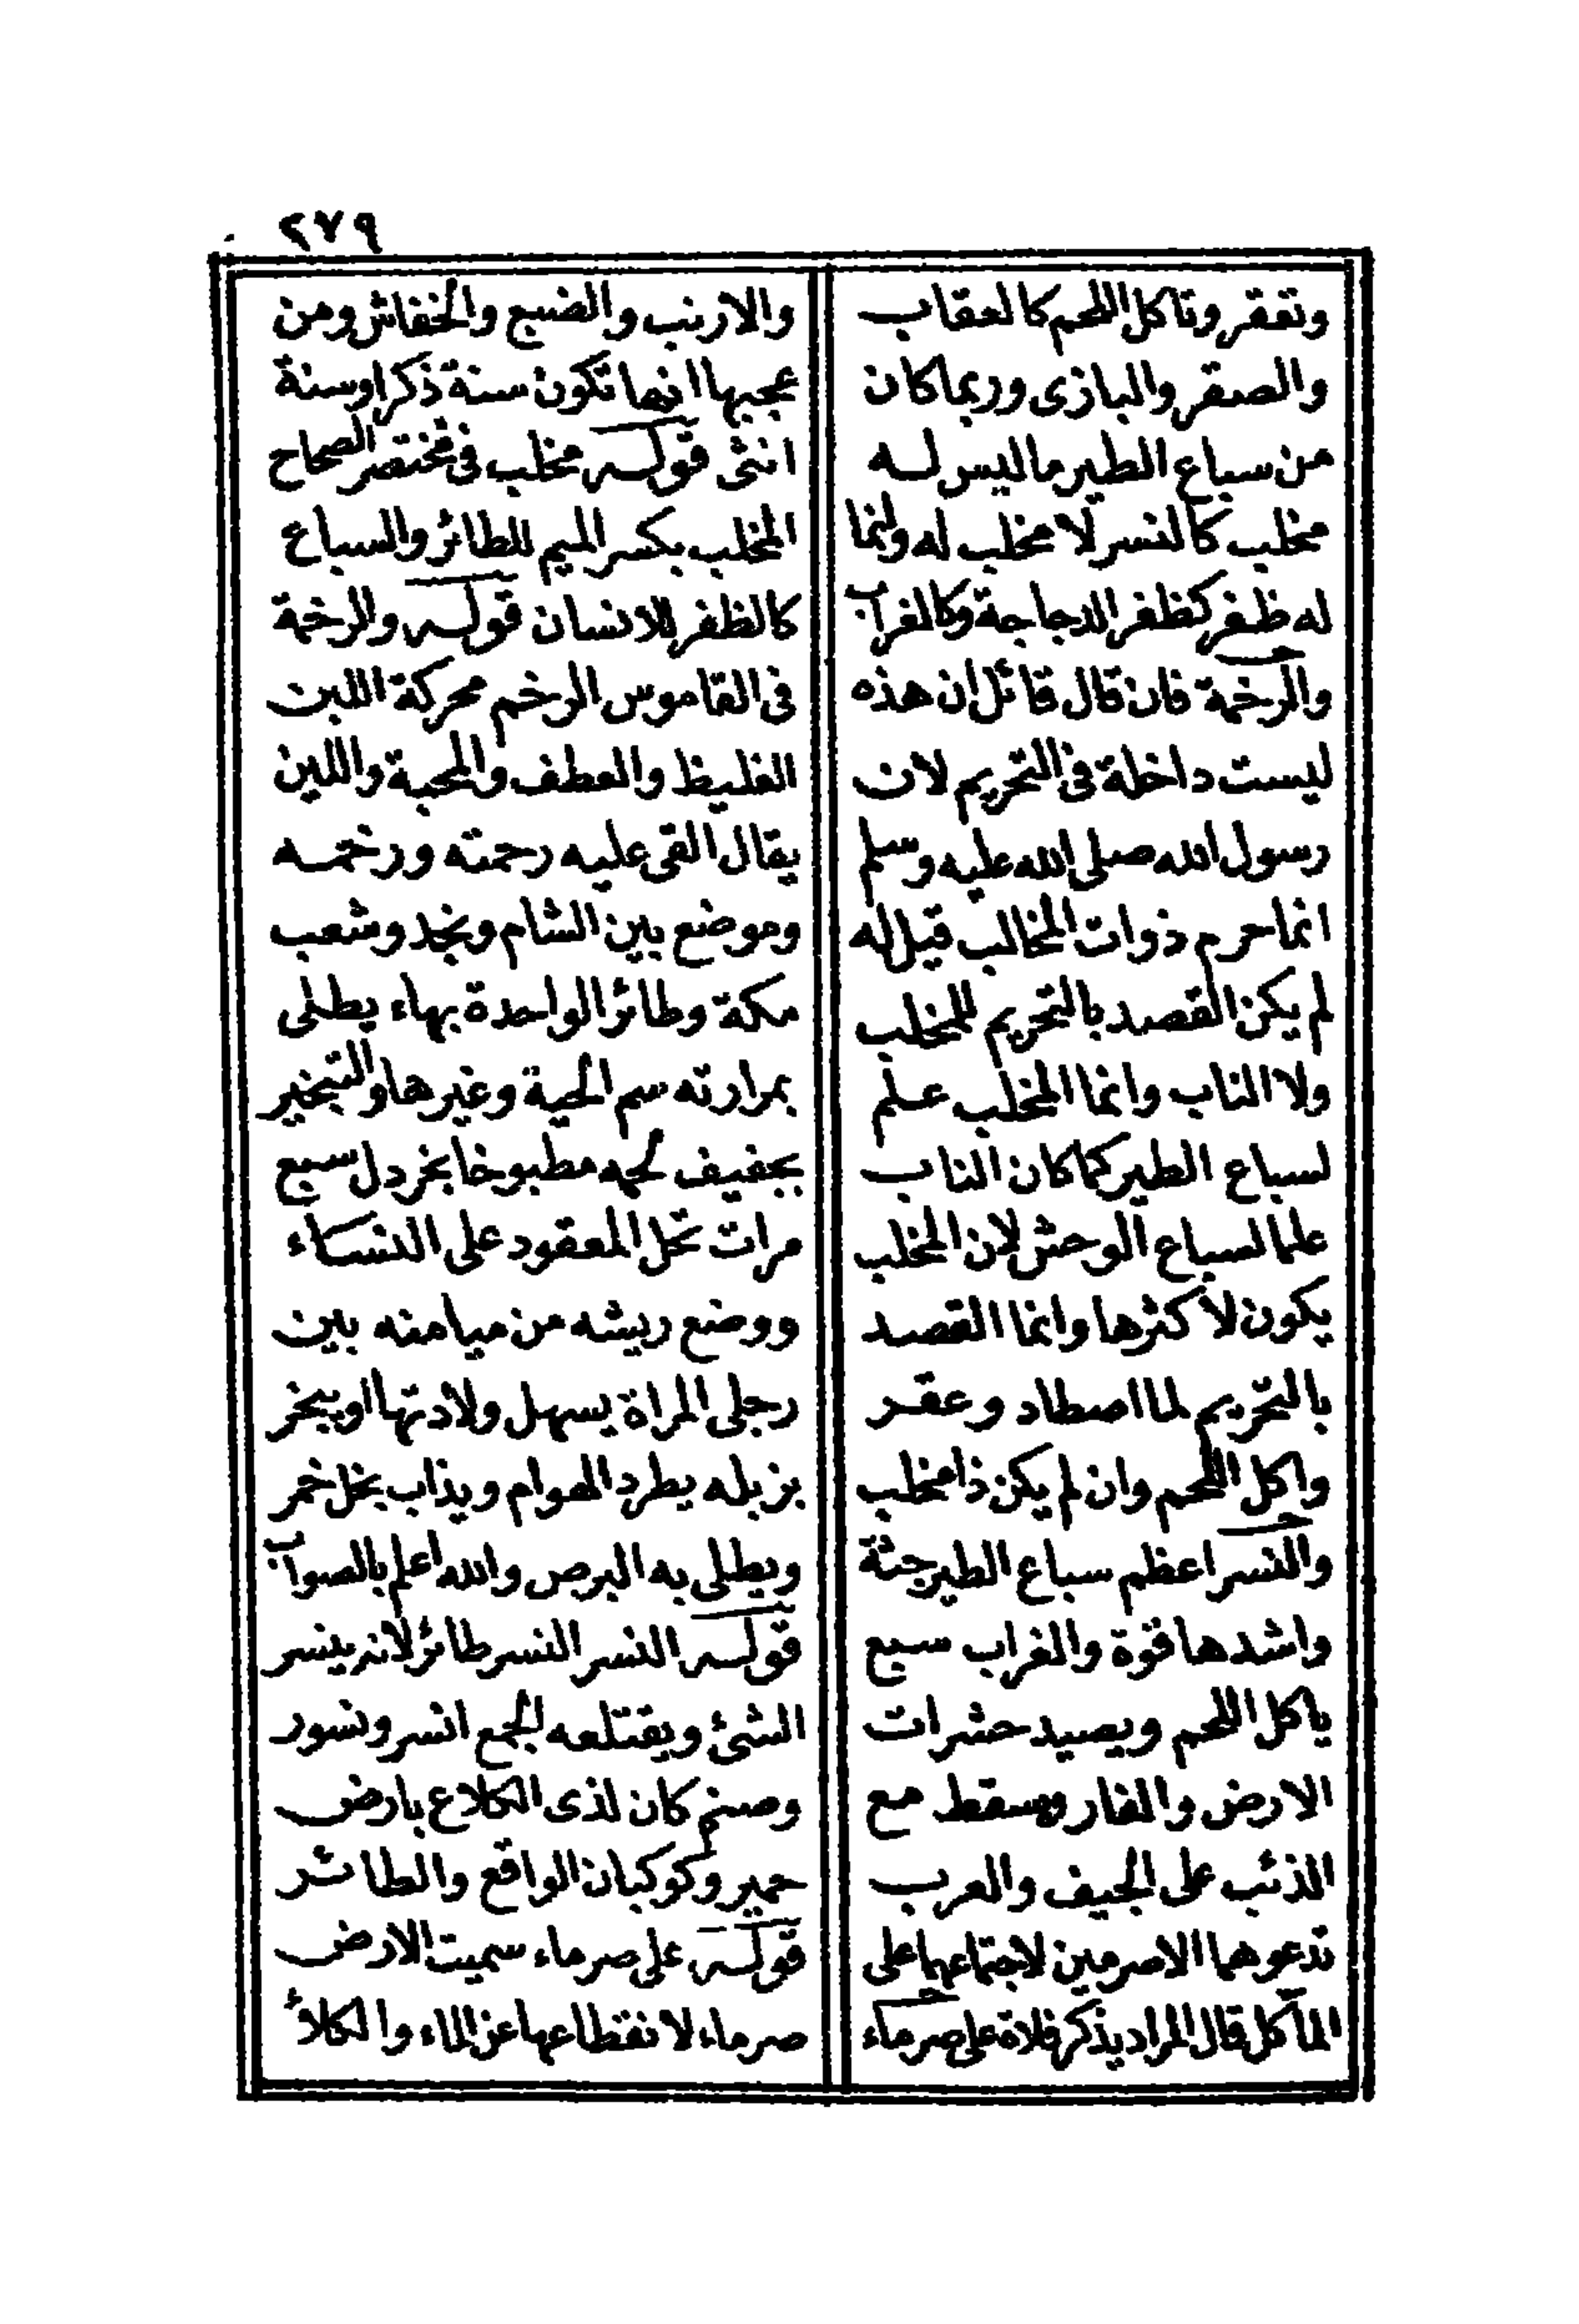 ٢٧٩
وتعقر وتاكل اللحم كالعقاب
والصقر والبازى وربما كان
من سباع الطير ما ليس له
مخلب كالنسر لا مخلب له وانما
له ظفر كظفر الدجاجة وكالغراب
والرخمة فان قال قائل ان هذه
ليست داخلة فى التحريم لان
رسول الله صلى الله عليه وسلم
انما حرم ذوات المخالب قيل له
لم يكن القصد بالتحريم للمخلب
ولا الناب وانما المخلب علم
لسباع الطير كما كان الناب
علما لسباع الوحش لان المخلب
يكون لاكثرها وانما القصد
بالتحريم لما اصطاد وعقر
واكل اللحم وان لم يكن ذا مخلب
والنسر اعظم سباع الطير جثة
واشدها قوة والغراب سبع
ياكل اللحم ويصيد حشرات
الارض والفار ويسقط مع
الذئب على الجيف والعرب
تدعوهما الاصرمين لاجتماعهما على
المآكل قال المراد يذكر فلاة على صرماء
والارنب والضبع والخفاش ومن
عجيبها انها تكون سنة ذكرا وسنة
انثى قوله مخلب فى مختصر الصحاح
المخلب بكسر الميم للطائر والسباع
كالظفر للانسان قوله والرخمة
فى القاموس الرخم محركة اللبن
الغليظ والعطف والمحبة واللين
يقال القى عليه رحمته ورخمه
وموضع بين الشام ونجد وشعب
مكة وطائر الواحدة بهاء يطلى
بمرارته سم الحية وغيرها والتبخير
بجفيف لحمه مطبوخا بخردل سبع
مرات تحل المعقود على النساء
ووضع ريشه من ميامنه بين
رجلى المراة يسهل ولادتها او يبخر
بزبله يطرد الهوام ويذاب بخل خمر
ويطلى به البرص والله اعلم بالصواب
قوله النسر النسر طائر لانه ينسر
الشئ ويقتلعه الجمع انسر ونسور
وصنم كان لذى الكلاع بارض
حمير وكوكبان الواقع والطائر
قوله على صرماء سميت الارض
صرماء لانقطاعها عن الماء والكلأ